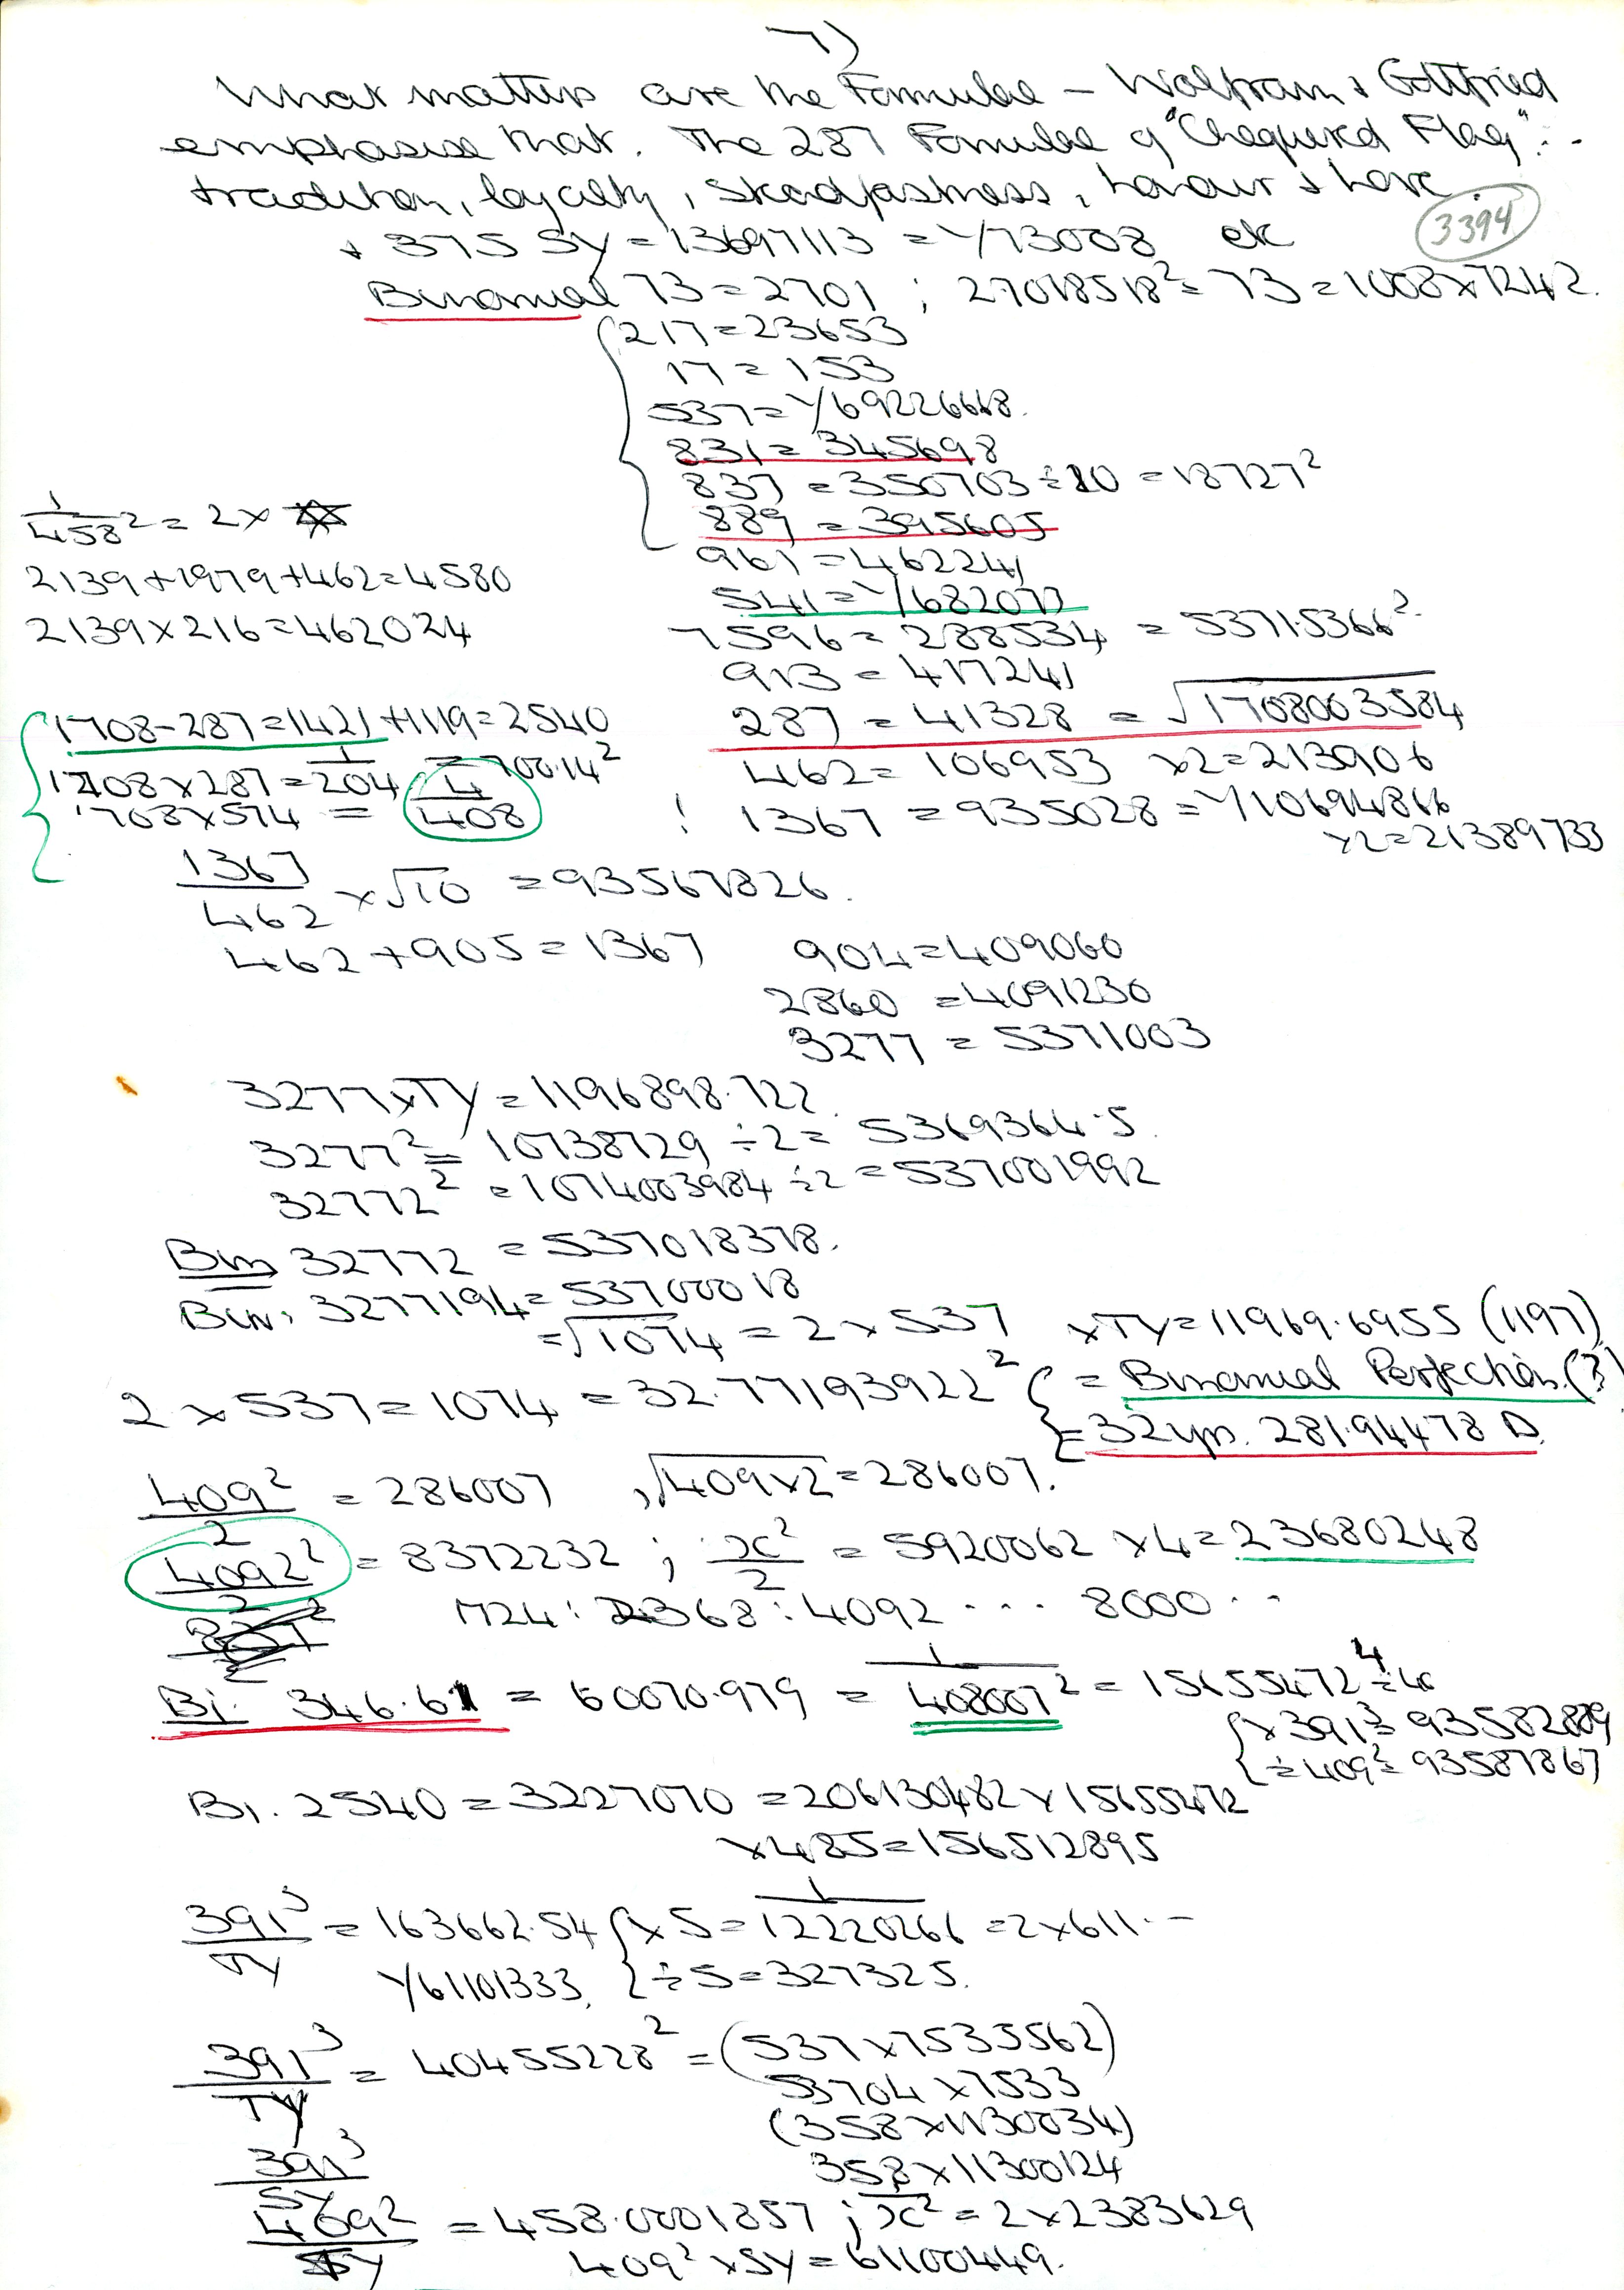 7)
What matters are the Formulae – Wolfram & Gottfried
emphasise that. The 287 Formulae of "Chequered Flag":-
tradition, loyalty, steadfastness, honour & love.
3394
+ 375 SY = 13697113 = Y73008 etc
Binomial 73 = 2701 ; 27018518² = 73 = 1008 x 7242.
217 = 23653
17 = 153
537 = Y69226668.
831 = 345698
837 = 350703 ÷ 20 = 18727²
889 = 395605
961 = 462241
541 = Y682077
7596 = 288534 = 53715366²
913 = 417241
287 = 41328 = √1708003584
462 = 106953 x2 = 213906
! 1367 = 935028 = Y10694866
x2 = 21389733
1/458² = 2 x
2139 + 1979 + 462 = 4580
2139 x 216 = 462024
1708 – 287 = 1421 + 1119 = 2540
1708 x 287 = 1/204 = 700.14²
1708 x 574 = 4/408
1367/462 x √10 = 93567826.
462 + 905 = 1367
904 = 409060
2860 = 4091230
3277 = 5371003
3277 x TY = 1196898.722
3277² = 10738729 ÷ 2 = 5369364.5
32772² = 1074003984 ÷ 2 = 537001992
Bin 32772 = 537018378.
Bin. 3277194 = 53700018
= √1074 = 2 x 537 x TY = 11969.6955 (1197)
2 x 537 = 1074 = 32.77193922² { = Binomial Perfection. (?)
= 32 yrs. 281.94478 D.
409²/2 = 286007 , √409x2 = 286007.
4092²/2 = 8372232 ; x²/2 = 5920062 x 4 = 23680248
1724 : 2368 : 4092 ... 8000 ..
Bi. 346.61 = 60070.979 = 1/408007² = 15655472⁴ ÷ 40
{ x 391³ = 93582889
÷ 409² = 93587867
Bi. 2540 = 3227070 = 206130482 x 15655472
x 485 = 156512895
391³/TY = 163662.54 { x 5 = 1/12220266 = 2 x 611.–
Y61101333. { ÷ 5 = 327325.
391³/TY = 40455228² = (537 x 7533562)
53704 x 7533
(358 x 1130034)
391³/SY 358 x 11300124
409²/SY = 458.0001857 ; x² = 2 x 2383629
409² x SY = 61100449.